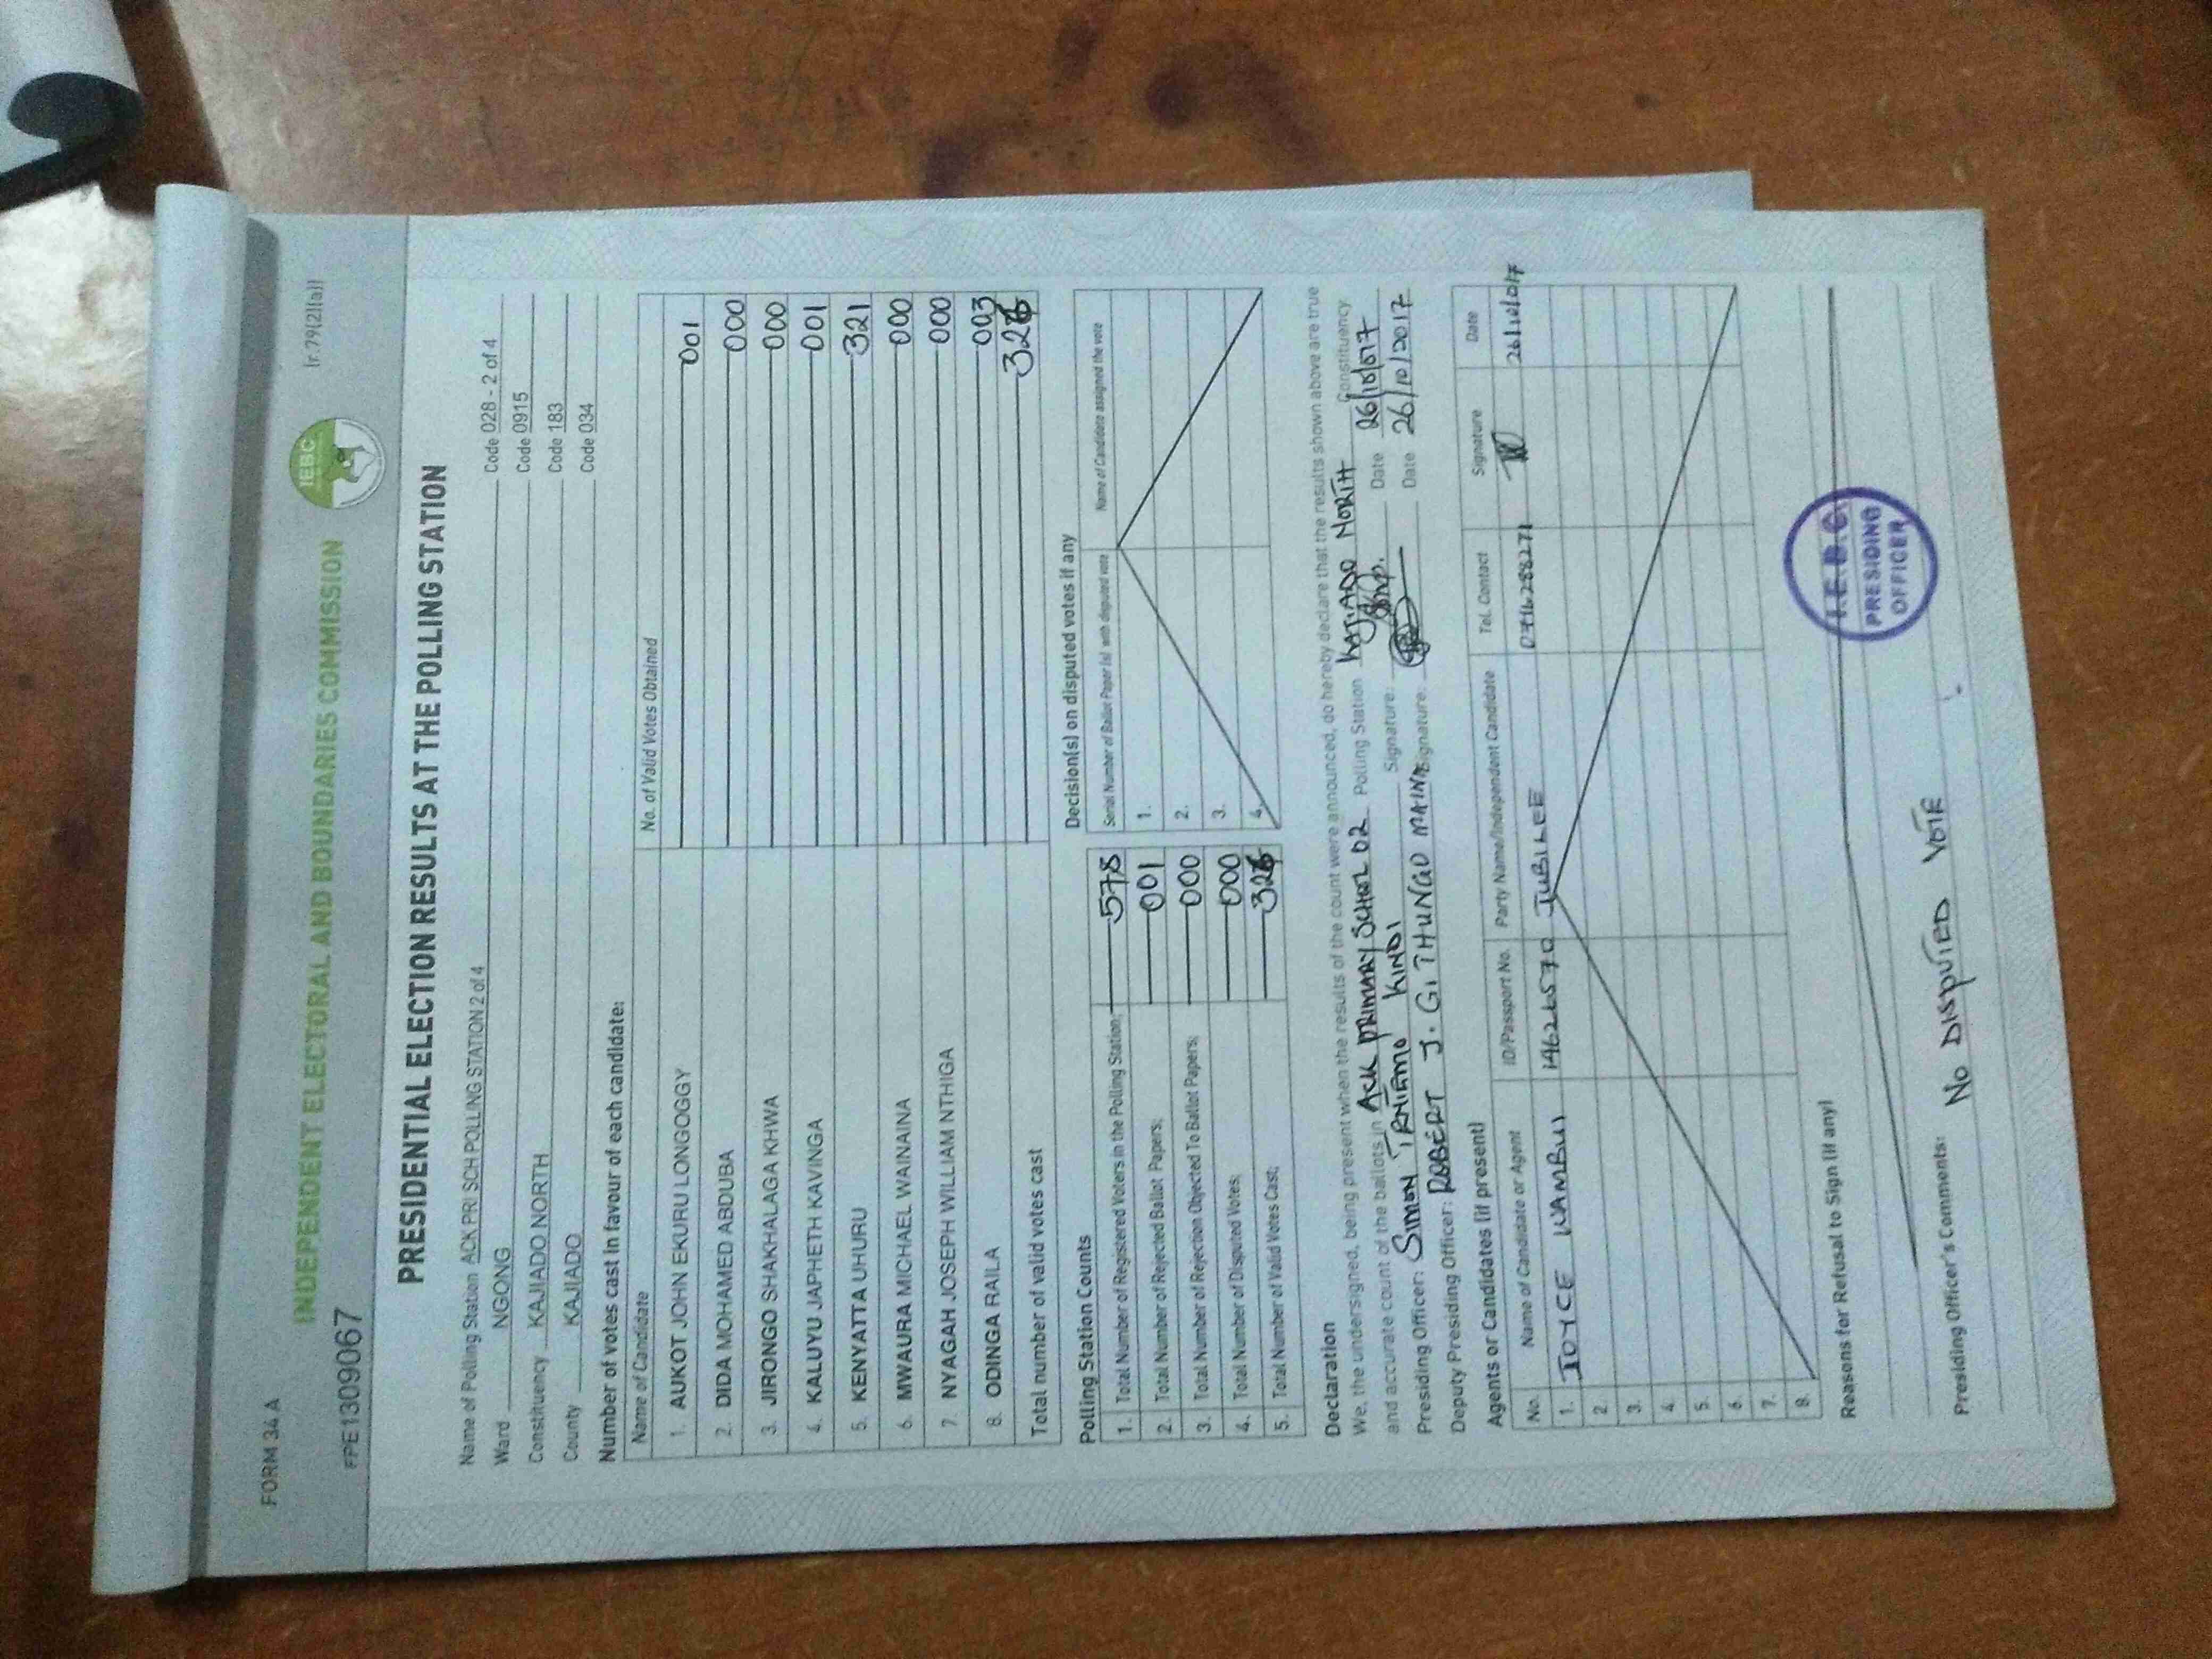 FORM 34 A
(r.79(2)(a))
IEBC
INDEPENDENT ELECTORAL AND BOUNDARIES COMMISSION
FPE1309067
PRESIDENTIAL ELECTION RESULTS AT THE POLLING STATION
Name of Polling Station ACK PRI SCH POLLING STATION 2 of 4 Code 028 - 2 of 4
Ward NGONG Code 0915
Constituency KAJIADO NORTH Code 183
County KAJIADO Code 034
Number of votes cast in favour of each candidate:
Name of Candidate No. of Valid Votes Obtained
1. AUKOT JOHN EKURU LONGOGGY 001
2. DIDA MOHAMED ABDUBA 000
3. JIRONGO SHAKHALAGA KHWA 000
4. KALUYU JAPHETH KAVINGA 001
5. KENYATTA UHURU 321
6. MWAURA MICHAEL WAINAINA 000
7. NYAGAH JOSEPH WILLIAM NTHIGA 000
8. ODINGA RAILA 003
Total number of valid votes cast 326
Polling Station Counts
1. Total Number of Registered Voters in the Polling Station; 578
2. Total Number of Rejected Ballot Papers; 001
3. Total Number of Rejection Objected To Ballot Papers; 000
4. Total Number of Disputed Votes; 000
5. Total Number of Valid Votes Cast; 326
Decision(s) on disputed votes if any
Serial Number of Ballot Paper (s) with disputed vote Name of Candidate assigned the vote
1.
2.
3.
4.
Declaration
We, the undersigned, being present when the results of the count were announced, do hereby declare that the results shown above are true
and accurate count of the ballots in ACK PRIMARY SCHOOL 02 Polling Station KAJIADO NORTH Constituency
Presiding Officer: SIMON KINDI Signature: Date 26/10/017
Deputy Presiding Officer: ROBERT J. GITHUNGO MAINA Signature: Date 26/10/2017
Agents or Candidates (if present)
No. Name of Candidate or Agent ID/Passport No. Party Name/Independent Candidate Tel. Contact Signature Date
1. JOYCE WAMBUI 14626570 JUBILEE 0716288271 26/10/017
2.
3.
4.
5.
6.
7.
8.
Reasons for Refusal to Sign (if any)
I.E.B.C.
PRESIDING
OFFICER
Presiding Officer's Comments: NO DISPUTED VOTE